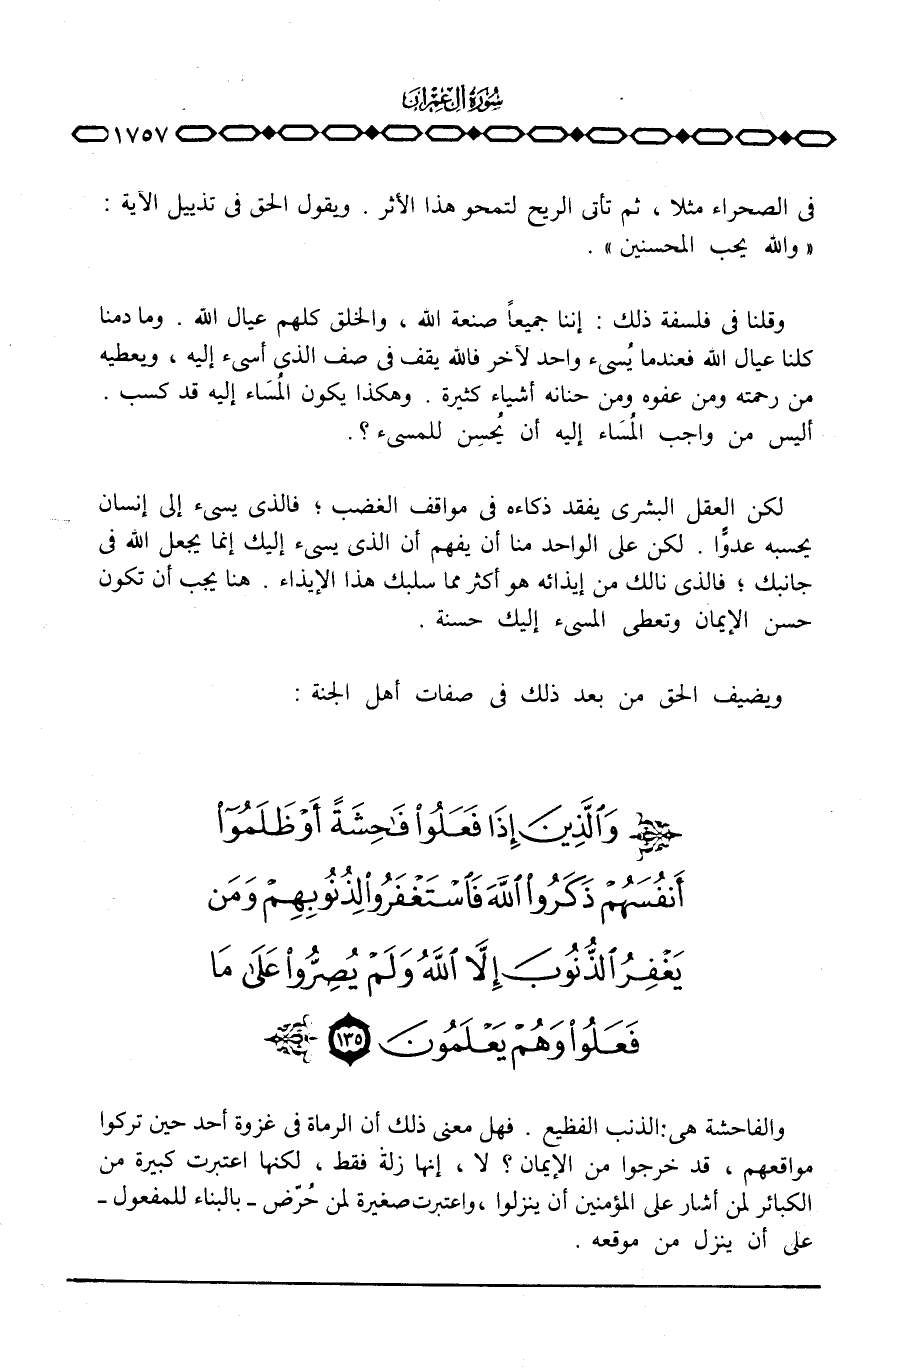 سورة آل عمران
١٧٥٧
فى الصحراء مثلا ، ثم تأتى الريح لتمحو هذا الأثر . ويقول الحق فى تذييل الآية :
« والله يحب المحسنين » .
وقلنا فى فلسفة ذلك : إننا جميعاً صنعة الله ، والخلق كلهم عيال الله . وما دمنا
كلنا عيال الله فعندما يُسىء واحد لآخر فالله يقف فى صف الذى أسىء إليه ، ويعطيه
من رحمته ومن عفوه ومن حنانه أشياء كثيرة . وهكذا يكون المُسَاء إليه قد كسب .
أليس من واجب المُسَاء إليه أن يُحسِن للمسىء ؟ .
لكن العقل البشرى يفقد ذكاءه فى مواقف الغضب ؛ فالذى يسىء إلى إنسان
يحسبه عدوًّا . لكن على الواحد منا أن يفهم أن الذى يسىء إليك إنما يجعل الله فى
جانبك ؛ فالذى نالك من إيذائه هو أكثر مما سلبك هذا الإيذاء . هنا يجب أن تكون
حسن الإيمان وتعطى المسىء إليك حسنة .
ويضيف الحق من بعد ذلك فى صفات أهل الجنة :
وَٱلَّذِينَ إِذَا فَعَلُوا۟ فَـٰحِشَةً أَوْ ظَلَمُوٓا۟
أَنفُسَهُمْ ذَكَرُوا۟ ٱللَّهَ فَٱسْتَغْفَرُوا۟ لِذُنُوبِهِمْ وَمَن
يَغْفِرُ ٱلذُّنُوبَ إِلَّا ٱللَّهُ وَلَمْ يُصِرُّوا۟ عَلَىٰ مَا
فَعَلُوا۟ وَهُمْ يَعْلَمُونَ ١٣٥
والفاحشة هى : الذنب الفظيع . فهل معنى ذلك أن الرماة فى غزوة أحد حين تركوا
مواقعهم ، قد خرجوا من الإيمان ؟ لا ، إنها زلة فقط ، لكنها اعتبرت كبيرة من
الكبائر لمن أشار على المؤمنين أن ينزلوا ، واعتبرت صغيرة لمن حُرّض - بالبناء للمفعول -
على أن ينزل من موقعه .